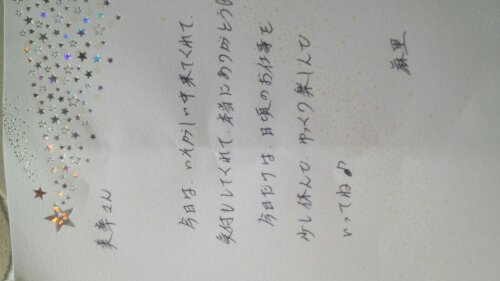 美幸さん
今日は、いそがしい中来てくれて、
受付もしてくれて、本当にありがとう
今日だけは、日頃のお仕事を
少し休んで、ゆっくり楽しんで
いってね♪
麻里